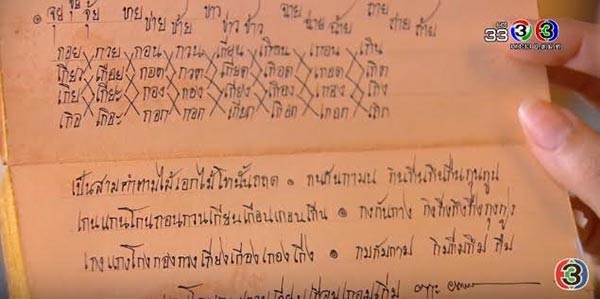 ๏ จุย จุ่ย จุ้ย ขาย ข่าย ข้าย ขาว ข่าว ข้าว ฉาย ฉ่าย ฉ้าย ถาย ถ่าย ถ้าย
กอย กวย กอน กวน เกียน เกือน เกอน เกิน
เกียว เกือย กอด กวด เกียด เกือด เกอด เกิด
เกีย เกียะ กอง กวง เกียง เกือง เกอง เกิง
เกือ เกือะ กอก กวก เกียก เกือก เกอก เกิก
เป็นสามคำตามไม้เอกไม้โทนั้นเถิด ๏ กนกันกาน กินกีนกึนกืนกุนกูน
เกนแกนโกนกอนกวนเกียนเกือนเกอนเกิน ๏ กงกังกาง กิงกีงกึงกืงกุงกูง
เกงแกงโกงกองกวงเกียงเกืองเกองเกิง ๏ กมกัมกาม กิมกีมกึม กืม
33 3
3